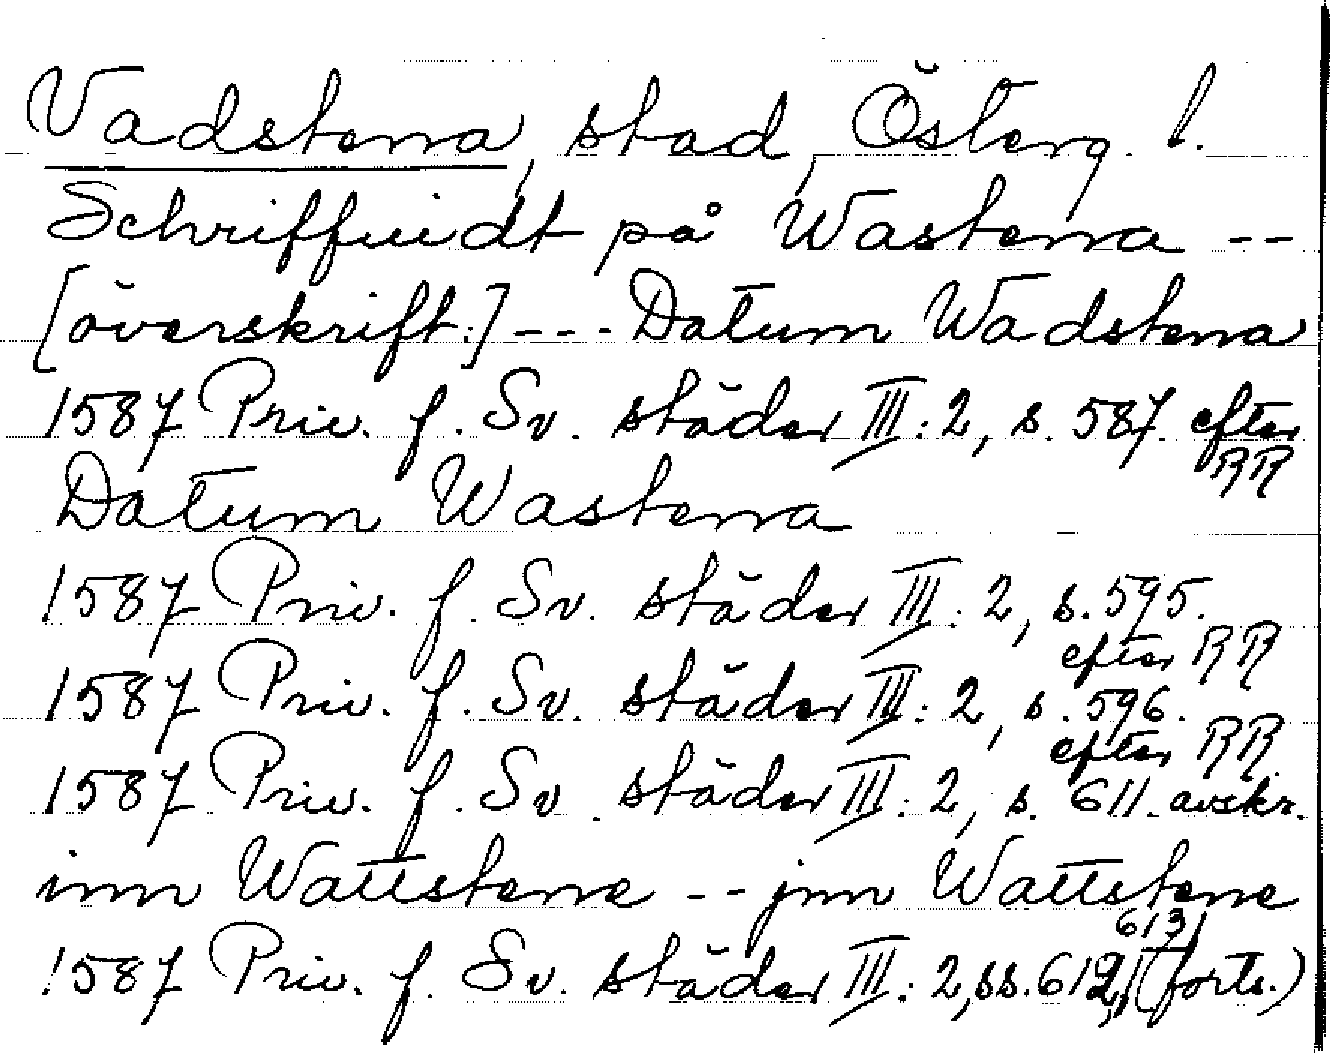 Vadstena, stad, Österg. l.
Schriffuidt på Wastena --
[överskrift:] --- Datum Wadstena
1587 Priv. f. Sv. städer III: 2, s. 587. efter RR
Datum Wastena
1587 Priv. f. Sv. städer III: 2, s. 595. efter RR
1587 Priv. f. Sv. städer III: 2, s. 596. efter RR
1587 Priv. f. Sv. städer III: 2, s. 611. avskr.
inn Wattstene -- jnn Wattstene
1587 Priv. f. Sv. städer III: 2, ss. 612, 613 (forts.)